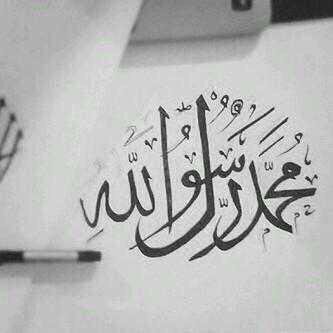 مُحَمَّد رَّسُولُ اللّٰه